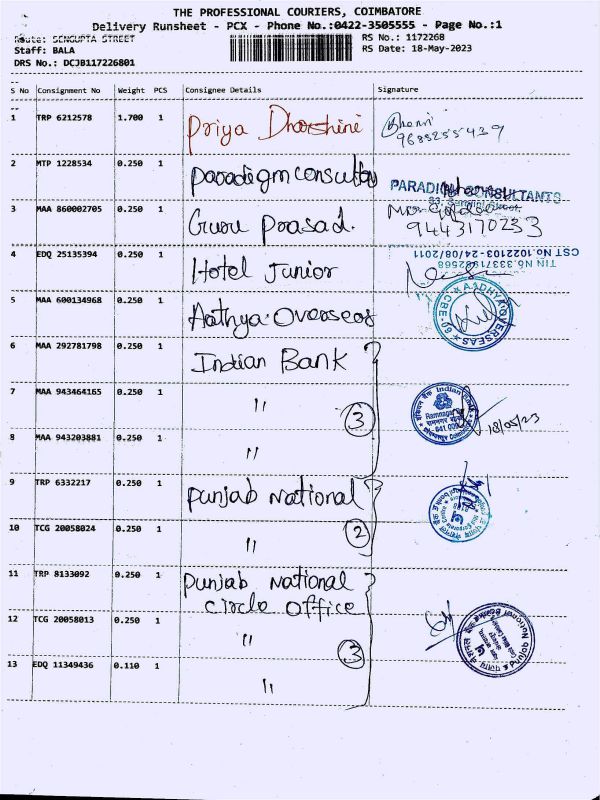 THE PROFESSIONAL COURIERS, COIMBATORE
Delivery Runsheet - PCX - Phone No.:0422-3505555 - Page No.:1
Route: SENGUPTA STREET
RS No.: 1172268
Staff: BALA
RS Date: 18-May-2023
DRS No.: DCJB117226801
S No Consignment No Weight PCS Consignee Details Signature
1 TRP 6212578 1.700 1 Priya Dharshini
9688255439
2 MTP 1228534 0.250 1 Paradigm consultan
PARADIGM CONSULTANTS
3 MAA 860002705 0.250 1 Guru Prasad.
9443170233
4 EDQ 25135394 0.250 1 Hotel Junior
CST No.1022103-24/08/2011
TIN No.33371982568
5 MAA 600134968 0.250 1 Aathya Overseas
AADHYA OVERSEAS CBE-
6 MAA 292781798 0.250 1 Indian Bank
7 MAA 943464165 0.250 1 " 3
Indian Bank
Ramnagar
18/05/23
8 MAA 943203881 0.250 1 "
9 TRP 6332217 0.250 1 Punjab National
10 TCG 20058024 0.250 1 " 2
11 TRP 8133092 0.250 1 Punjab National
Circle Office
12 TCG 20058013 0.250 1 " 3
Punjab National Bank
13 EDQ 11349436 0.110 1 "